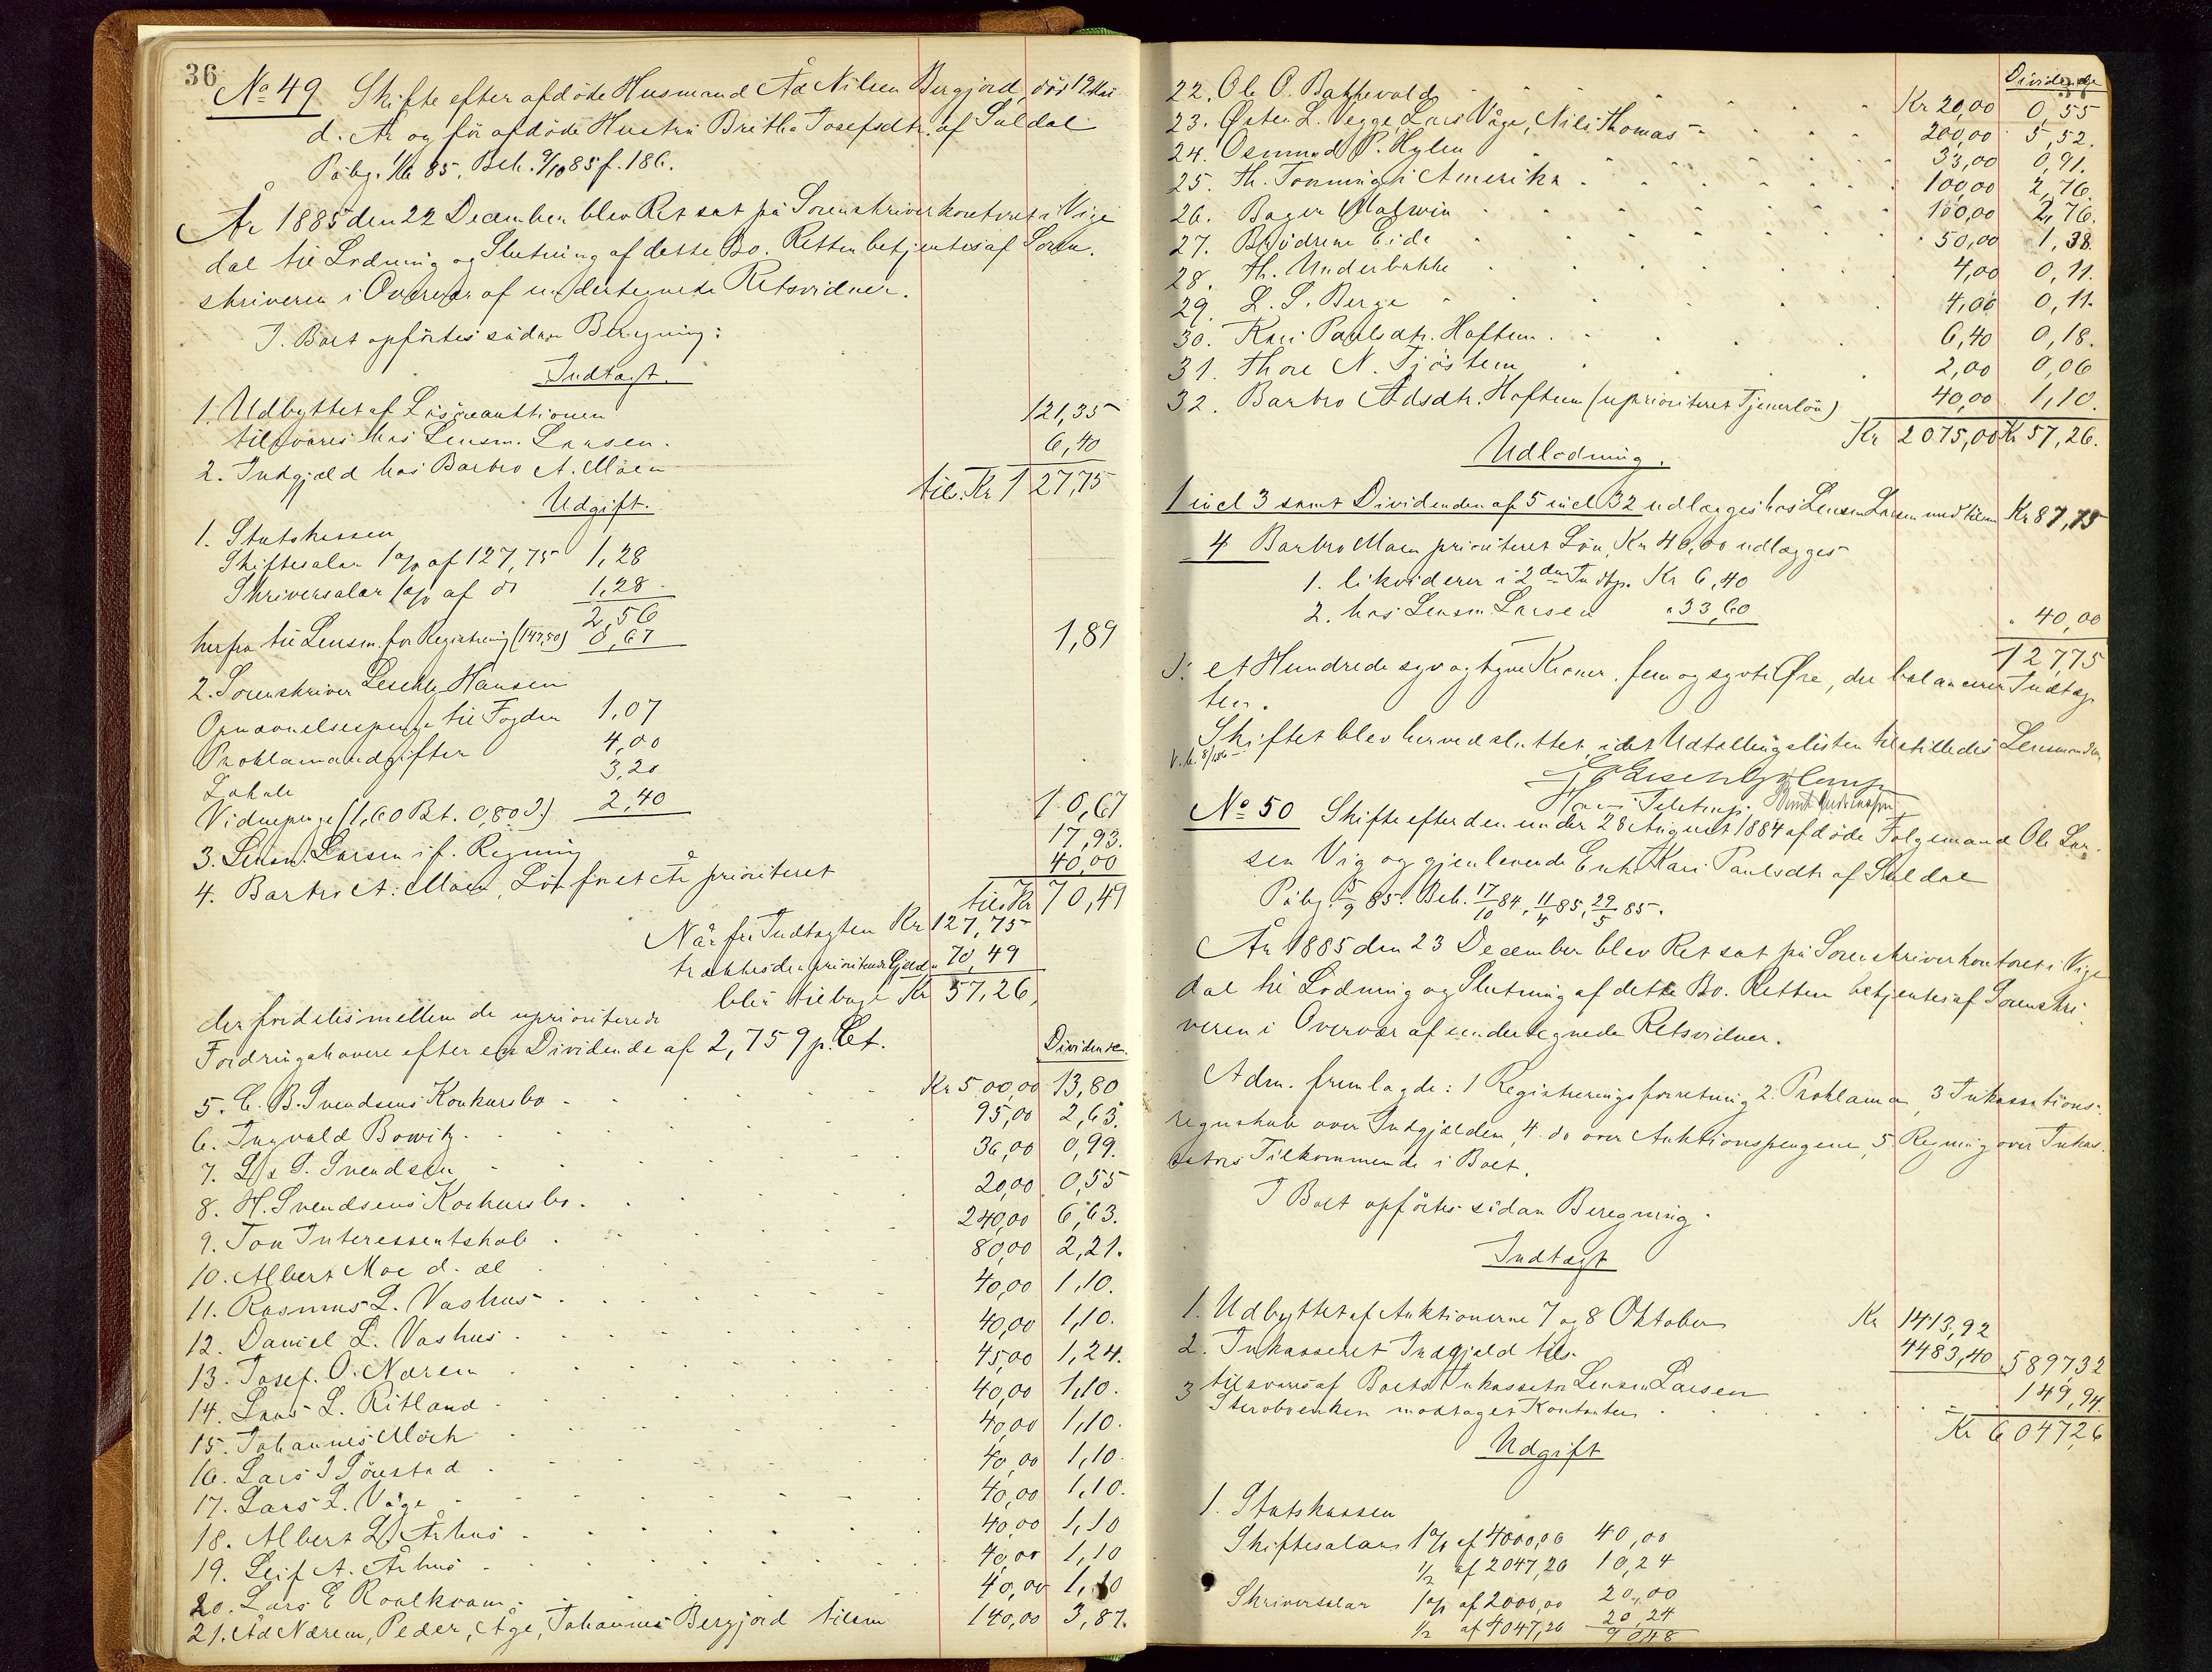 36
No 49 Skifte efter afdøde Husmand Åd Nilsen Bergjord, død 12 Mai
d. År og før afdøde Hustru Britha Josefsdtr. af Suldal
Påbg. 1/6 85. Beh. 9/10 85 f. 186.
År 1885 den 22 December blev Ret sat på Sorenskriverkontoret i Vige
dal til Lodning og Slutning af dette Bo. Retten betjentes af Soren
skriveren i Overvær af undertegnede Retsvidner.
I Boet opførtes sådan Beregning:
Indtægt.
1. Udbyttet af Løsøreauktionen
tilsvares hos Lensm. Larsen. 121,35
2. Indgjæld hos Barbro A. Moen 6,40
tils. Kr 127,75
Udgift.
1. Statskassen
Skiftesalær 1 % af 127,75 1,28
Skriversalær 1 % af do 1,28
2,56
herfra til Lensm. for Registrering (147,50) 0,67
1,89
2. Sorenskriver Leschly Hansen
Opnævnelsespenge til Fogden 1,07
Proklamaudgifter 4,00
Lokale 3,20
Vidnepenge (1,60 Bt. 0,80 J.) 2,40
10,67
3. Lensm. Larsen if. Regning 17,93.
4. Barbro A. Moen, Løn for et År prioriteret 40,00
tils. Kr 70,49
Når fra Indtægten Kr 127,75
trækkes den prioriterede Gjæld " 70,49
blir tilbage Kr 57,26,
der fordeles mellem de uprioriterede
Fordringshavere efter en Dividende af 2,759 p. Ct.
Dividende.
5. C. B. Svendsens Konkursbo Kr 500,00 13,80
6. Ingvald Bowitz. 95,00 2,63.
7. L. & S. Svendsen 36,00 0,99.
8. H. Svendsens Konkursbo. 20,00 0,55
9. Ton Interessentskab 240,00 6,63.
10. Albert Moe d. æl 80,00 2,21.
11. Rasmus L. Vashus 40,00 1,10.
12. Daniel L. Vashus 40,00 1,10.
13. Josef. O. Nærem 45,00 1,24.
14. Lars L. Ritland 40,00 1,10.
15. Johannes Moch 40,00 1,10.
16. Lars J Sørestad 40,00 1,10.
17. Lars L. Våge 40,00 1,10.
18. Albert L. Århus 40,00 1,10
19. Leif A. Århus 40,00 1,10
20. Lars E Roalkvam 40,00 1,10
21. Åd Nærem, Peder, Åge, Johannes Bergjord tilsm 140,00 3,87.
Dividende
22. Ole O. Bakkevold Kr 20,00 0,55
23. Østen L. Vegge, Lars Våge, Nils Thomas 200,00 5,52.
24. Osmund P. Hylen 33,00 0,91.
25. Th. Tonning i Amerika 100,00 2,76.
26. Bager Malmin 100,00 2,76.
27. Brødrene Eide 50,00 1,38.
28. Th. Underbakke 4,00 0,11.
29. L. S. Berge 4,00 0,11.
30. Kari Paulsdtr. Hoftun. 6,40 0,18.
31. Thore N. Tjøstem 2,00 0,06
32. Barbro Adsdtr. Hoftun (uprioriteret Tjenerløn) 40,00 1,10.
Kr 2075,00 Kr 57,26.
Udlodning.
1 incl 3 samt Dividenden af 5 incl 32 udlægges hos Lensm Larsen med tilsm Kr 87,75
4 Barbro Moen prioriteret Løn, Kr 40,00 udlægges
1. likviderer i 2den Indtgt. Kr 6,40
2. hos Lensm. Larsen " 33,60
" 40,00
127,75
S: et Hundrede syv og tyve Kroner, fem og sytti Øre, der balancerer Indtæg
ten.
Skiftet blev herved sluttet, idet Udtællingslisten tilstilledes Lensmanden
No 50 Skifte efter den under 28 August 1884 afdøde Følgemand Ole Lar
sen Vig og gjenlevende Enke Kari Paulsdtr af Suldal
Påbg. 5/9 85. Beh. 17/10 84, 11/4 85, 29/5 85.
År 1885 den 23 December blev Ret sat på Sorenskriverkontoret i Vige
dal til Lodning og Slutning af dette Bo. Retten betjentes af Sorenskri
veren i Overvær af undertegnede Retsvidner.
Adm. fremlagde: 1 Registreringsforretning 2. Proklama, 3 Inkassations-
regnskab over Indgjælden, 4. do over Auktionspengene, 5. Regning over Inkas
sators Tilkommende i Boet.
I Boet opførtes sådan Beregning.
Indtægt
1. Udbyttet af Auktionerne 7 og 8 Oktober Kr 1413,92
2. Inkasseret Indgjæld tils. 4483,40 5897,32
tilsvares af Boets Inkassator Lensm Larsen
3 Stervboenken modtaget Kontanter 149,94.
Kr 6047,26
Udgift
1. Statskassen
Skiftesalær 1 % af 4000,00 40,00
1/2 af 2047,26 10,24
Skriversalær 1 % af 2000,00 20,00
1/2 af 4047,26 20,24
90,48